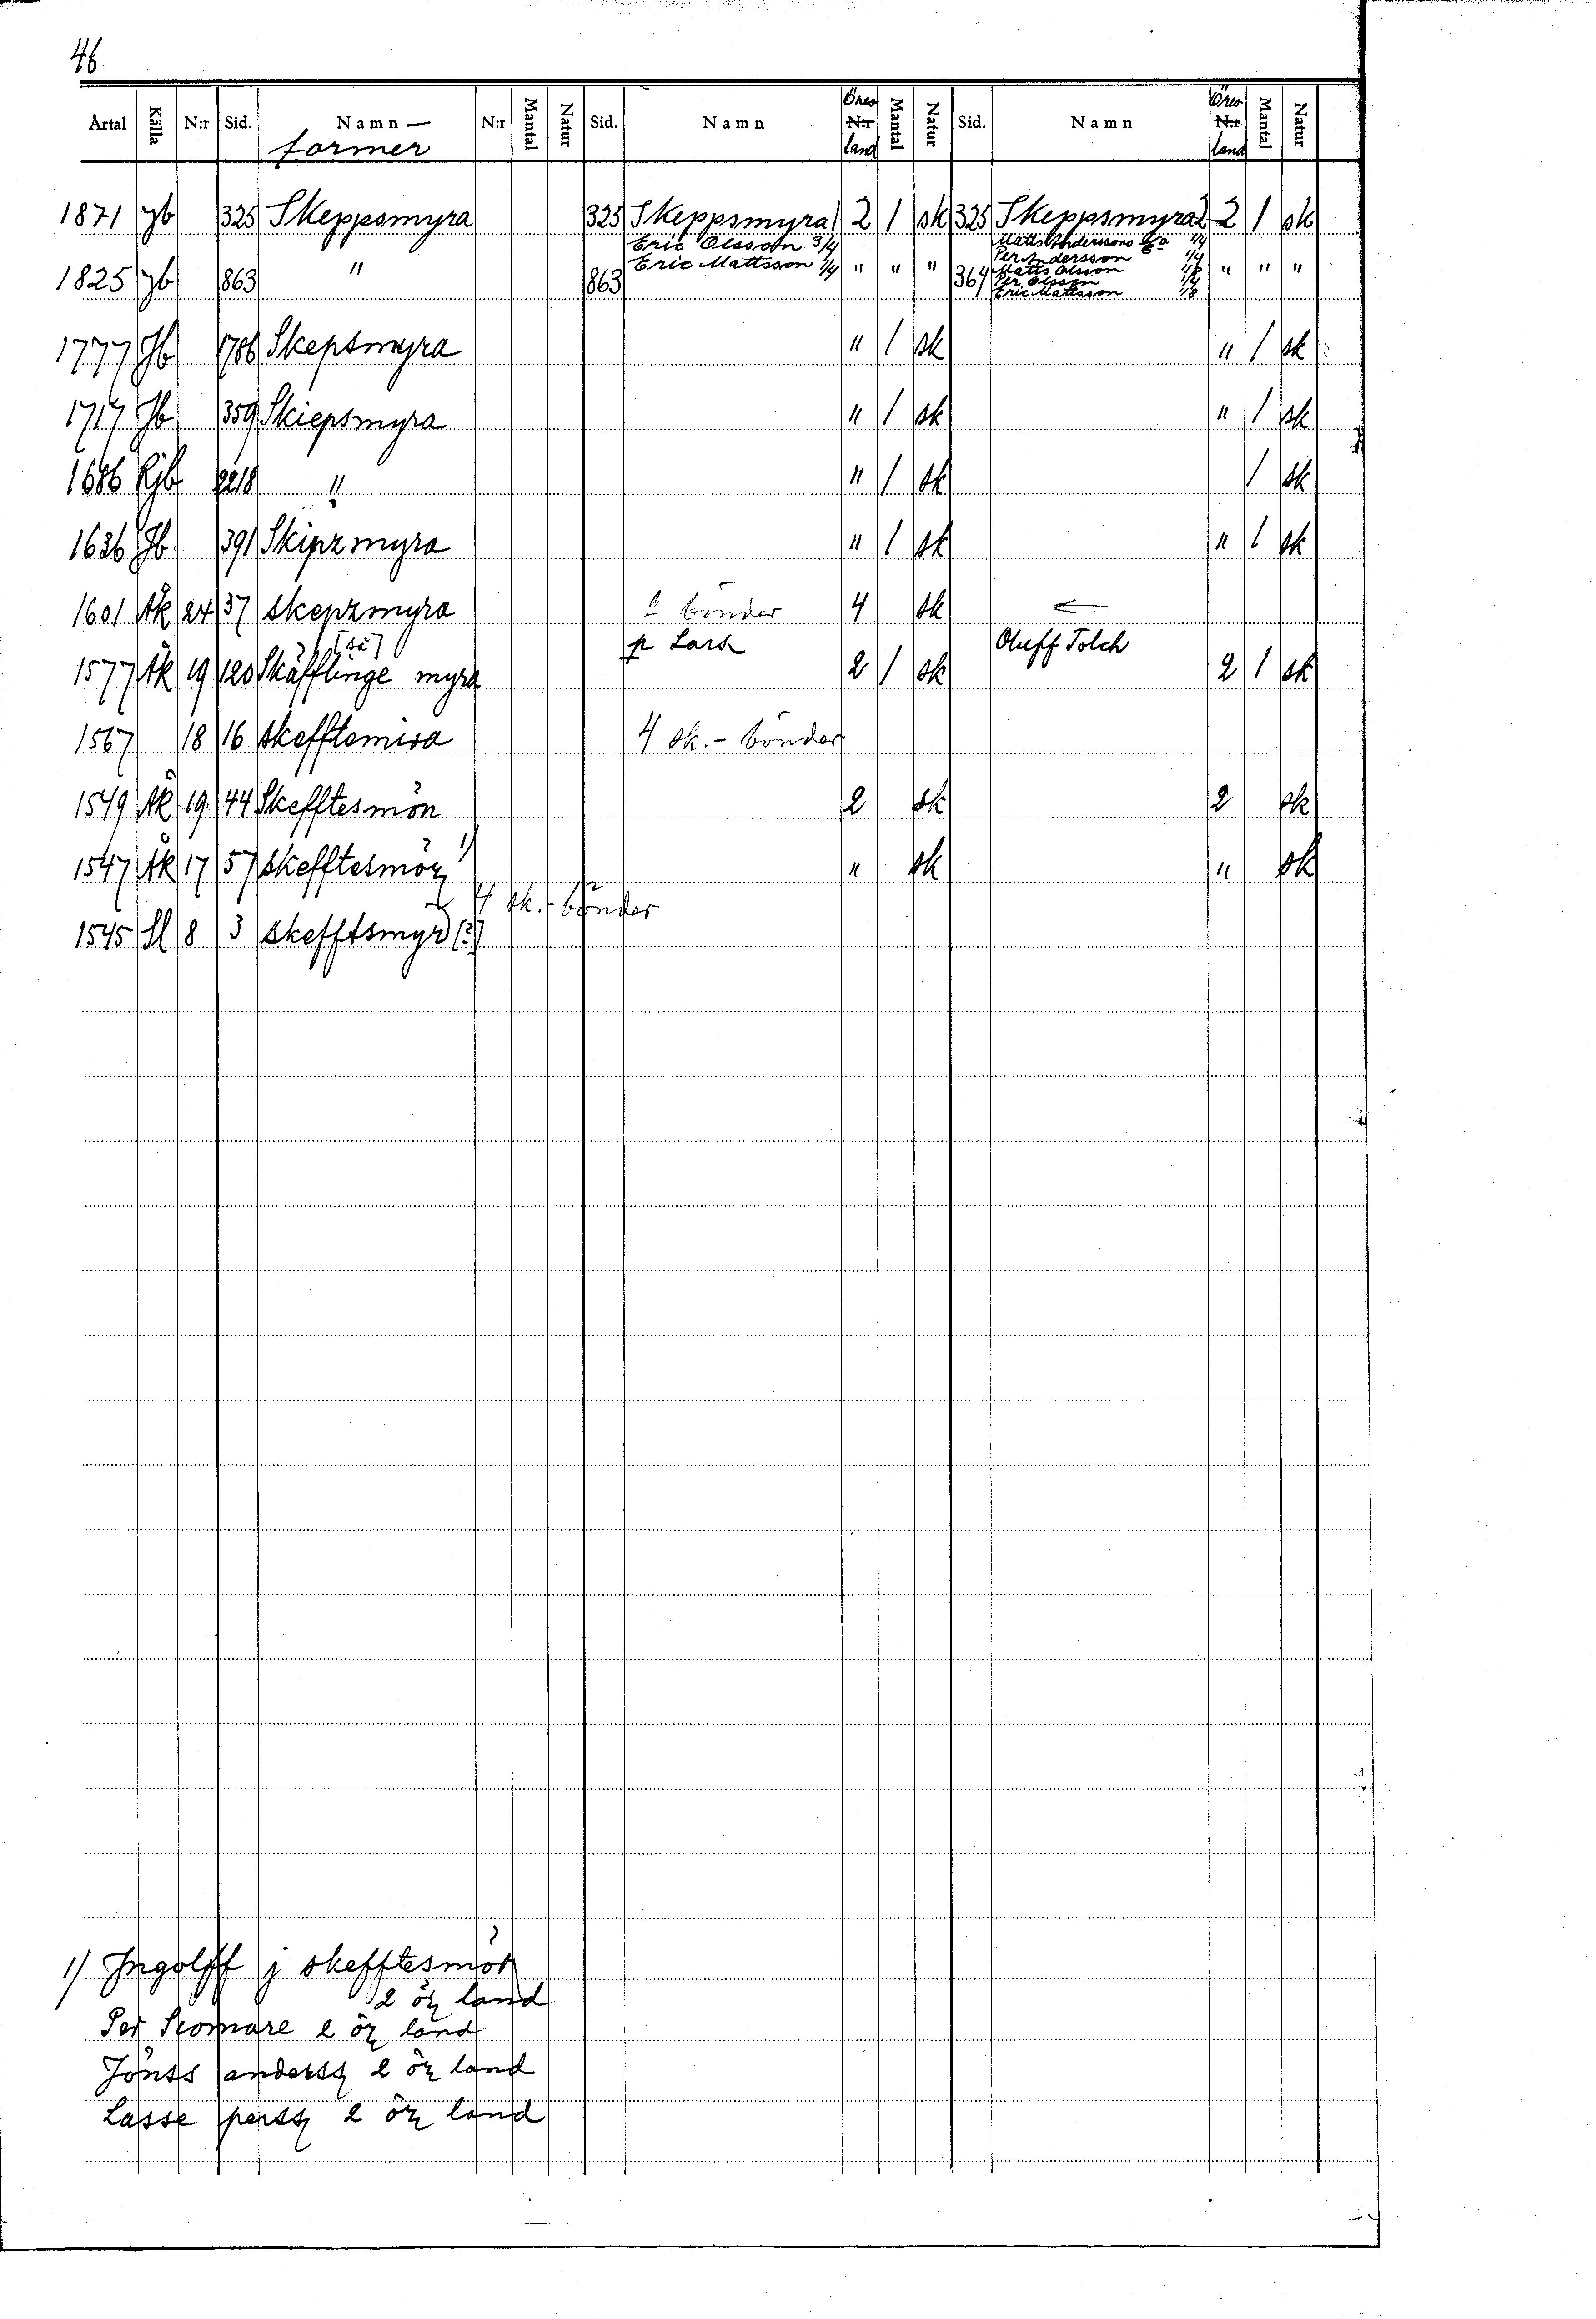 46.
Årtal Källa N:r Sid. Namn — former N:r Mantal Natur Sid. Namn Öres N:r land Mantal Natur Sid. Namn Öres N:r land Mantal Natur
1871 jb 325 Skeppsmyra 325 Skeppsmyra 1 2 1 sk 325 Skeppsmyra 2 2 1 sk
Eric Olsson 3/4 Matts Anderssons 1/4
1825 jb 863 " 863 Eric Mattsson 1/4 " " " 364 Per Andersson 1/4 " " "
Matts Olsson 1/8
Per Olsson 1/4
Eric Mattsson 1/8
1777 Jb 1706 Skepsmyra " 1 sk " 1 sk
1717 Jb 359 Skiepsmyra " 1 sk " 1 sk
1686 Rjb 2218 " " 1 sk 1 sk
1636 Jb 391 Skipzmyra " 1 sk " 1 sk
1601 Åk 24 37 skepzmyra 2 bönder 4 sk ←
[så] p Lars Oluff Tolch
1577 Åk 19 120 Skäfflinge myra 2 1 sk 2 1 sk
1567 18 16 skefftemira 4 sk.- bönder
1549 Åk 19 44 Skefftesmôn 2 sk 2 sk
1547 Åk 17 57 skefftesmör 1) " sk " sk
4 sk.- bönder
1545 Sl 8 3 skefftsmyr [?]
1) Jngolff j skefftesmör
2 öz land
Per Scomare 2 öz land
Jönss anderss 2 öz land
Lasse perss 2 öz land